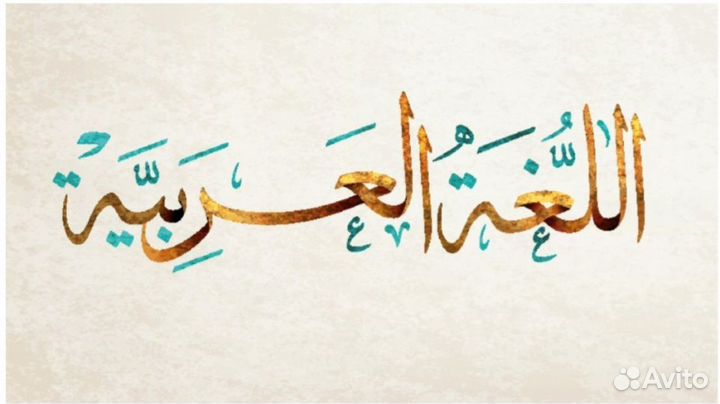 اللُّغَةُ العَرَبِيَّة
Avito